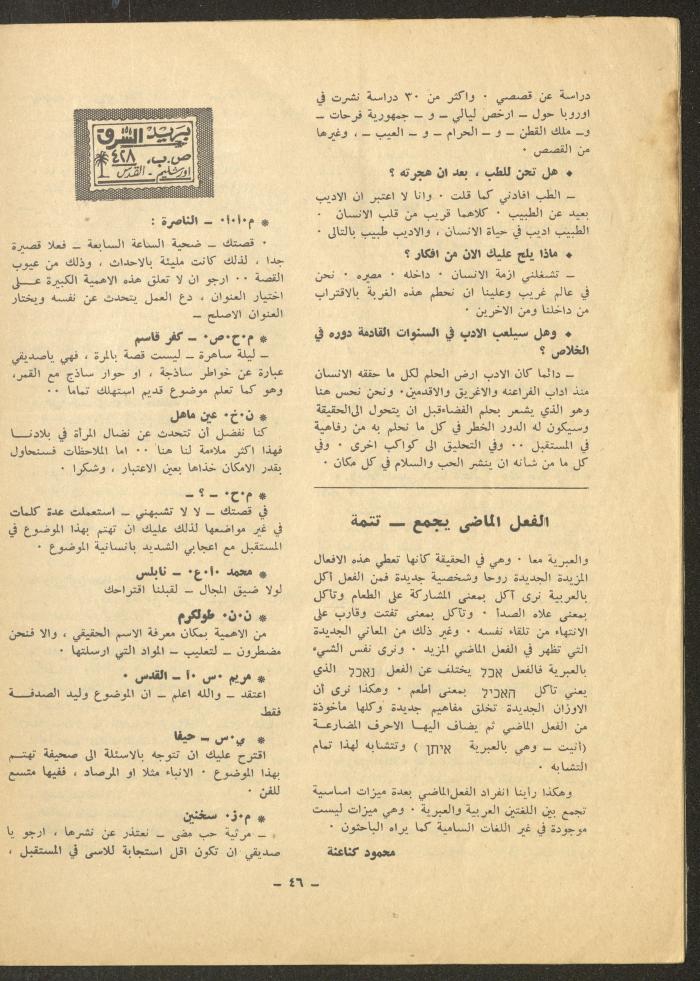 دراسة عن قصصي ٠ واكثر من ٣٠ دراسة نشرت في
اوروبا حول ــ ارخص ليالي ــ و ــ جمهورية فرحات ــ
وــ ملك القطن ــ و ــ الحرام ــ و ــ العيب ــ ، وغيرها
من القصص ٠
٠ هل تحن للطب ، بعد ان هجرته ؟
ــ الطب افادني كما قلت ٠ وانا لا اعتبر ان الاديب
بعيد عن الطبيب ٠ كلاهما قريب من قلب الانسان ٠
الطبيب اديب في حياة الانسان ، والاديب طبيب بالتالى ٠
٠ ماذا يلح عليك الان من افكار ؟
ــ تشغلني ازمة الانسان ٠ داخله ٠ مصيره ٠ نحن
في عالم غريب وعلينا ان نحطم هذه الغربة بالاقتراب
من داخلنا ومن الاخرين ٠
٠ وهل سيلعب الادب في السنوات القادمة دوره في
الخلاص ؟
ــ دائما كان الادب ارض الحلم لكل ما حققه الانسان
منذ اداب الفراعنه والاغريق والاقدمين٠ ونحن نحس هنا
وهو الذي يشعر بحلم الفضاءقبل ان يتحول الىالحقيقة
وسيكون له الدور الخطر في كل ما نحلم به من رفاهية
في المستقبل ٠٠ وفي التحليق الى كواكب اخرى ٠ وفي
كل ما من شانه ان ينشر الحب والسلام في كل مكان ٠
الفعل الماضي يجمع ــ تتمة
والعبرية معا ٠ وهي في الحقيقة كأنها تعطي هذه الافعال
المزيدة الجديدة روحا وشخصية جديدة فمن الفعل أكل
بالعربية نرى آكل بمعنى المشاركة على الطعام وتآكل
بمعنى علاه الصدأ ٠ وتآكل بمعنى تفتت وقارب على
الانتهاء من تلقاء نفسه ٠ وغير ذلك من المعاني الجديدة
التي تظهر في الفعل الماضي المزيد ٠ ونرى نفس الشيء
بالعبرية فالفعل אכל يختلف عن الفعل נאכל الذي
يعني تآكل האכיל بمعنى اطعم ٠ وهكذا نرى أن
الاوزان الجديدة تخلق مفاهيم جديدة وكلها مأخوذة
من الفعل الماضي ثم يضاف اليها الاحرف المضارعـة
(أنيت ــ وهي بالعبرية איתן ) وتتشابه لهذا تمام
التشابه ٠
وهكذا رأينا انفراد الفعل الماضي بعدة ميزات اساسية
تجمع بين اللغتين العربية والعبرية ٠ وهي ميزات ليست
موجودة في غير اللغات السامية كما يراه الباحثون ٠
محمود كناعنة
بريد الشرق
ص٠ب٠ ٤٢٨
اورشليم ــ القدس
* م٠ا٠ا٠ ــ الناصرة :
٠ قصتك ــ ضحية الساعة السابعة ــ فعلا قصيرة
جدا ، لذلك كانت مليئة بالاحداث ، وذلك من عيوب
القصة ٠٠ ارجو ان لا تعلق هذه الاهمية الكبيرة عــلى
اختيار العنوان ، دع العمل يتحدث عن نفسه ويختار
العنوان الاصلح ــ
* م٠ح٠ص٠ ــ كفر قاسم
ــ ليلة ساهرة ــ ليست قصة بالمرة ، فهي ياصديقي
عبارة عن خواطر ساذجة ، او حوار ساذج مع القمر،
وهو كما تعلم موضوع قديم استهلك تماما ٠٠
* ن٠خ٠ عين ماهل
كنا نفضل أن تتحدث عن نضال المرأة في بلادنــا
فهذا اكثر ملاءمة لنا هنا ٠٠ اما الملاحظات فسنحاول
بقدر الامكان خذاها بعين الاعتبار ، وشكرا ٠
* م٠ح٠ ــ ؟ ــ
في قصتك ــ لا لا تشبهني ــ استعملت عدة كلمات
في غير مواضعها لذلك عليك ان تهتم بهذا الموضوع في
المستقبل مع اعجابي الشديد بانسانية الموضوع ٠
* محمد ٠ا٠ع٠ ــ نابلس
لولا ضيق المجال ــ لقبلنا اقتراحك
* ن٠ن٠ طولكرم
من الاهمية بمكان معرفة الاسم الحقيقي ، والا فنحن
مضطرون ــ لتعليب ــ المواد التي ارسلتها ٠
* مريم ٠س ٠ا ــ القدس ٠
اعتقد ــ والله اعلم ــ ان الموضوع وليد الصدفــة
فقط
* ي٠س ــ حيفا
اقترح عليك ان تتوجه بالاسئلة الى صحيفة تهتــم
بهذا الموضوع ٠ الانباء مثلا او المرصاد ، ففيها متسع
للفن ٠
* م٠ز٠ سخنين
ــ مرثية حب مضى ــ نعتذر عن نشرها ، ارجو يا
صديقي ان تكون اقل استجابة للاسى في المستقبل ،
ــ ٤٦ ــ